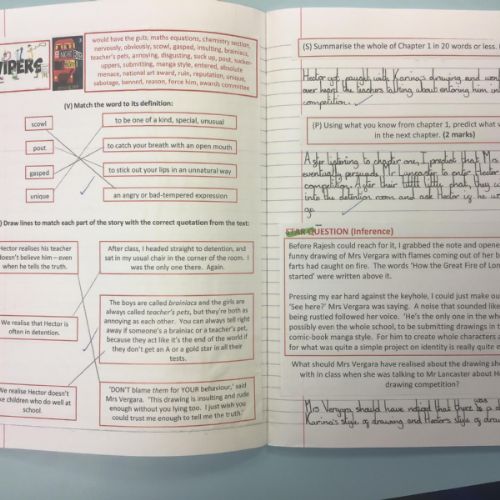 VIPERS
would have the guts, maths equations, chemistry section,
nervously, obviously, scowl, gasped, insulting, brainiacs,
teacher's pets, annoying, disgusting, suck up, pout, sucker-
uppers, submitting, manga style, entered, absolute
menace, national art award, ruin, reputation, unique,
sabotage, banned, reason, force him, awards committee
(V) Match the word to its definition:
scowl
to be one of a kind, special, unusual
pout
to catch your breath with an open mouth
gasped
to stick out your lips in an unnatural way
unique
an angry or bad-tempered expression
) Draw lines to match each part of the story with the correct quotation from the text:
Hector realises his teacher
doesn't believe him—even
when he tells the truth.
After class, I headed straight to detention, and
sat in my usual chair in the corner of the room. I
was the only one there. Again.
We realise that Hector is
often in detention.
The boys are called brainiacs and the girls are
always called teacher's pets, but they're both as
annoying as each other. You can always tell right
away if someone's a brainiac or a teacher's pet,
because they act like it's the end of the world if
they don't get an A or a gold star in all their
tests.
We realise Hector doesn't
like children who do well at
school.
'DON'T blame them for YOUR behaviour,' said
Mrs Vergara. 'This drawing is insulting and rude
enough without you lying too. I just wish you
could trust me enough to tell me the truth.'
(S) Summarise the whole of Chapter 1 in 20 words or less.
Hector got caught with Karina's drawing and
over heard the teachers talking about entering him in
competition.
(P) Using what you know from chapter 1, predict what
in the next chapter. (2 marks)
After listening to chapter one, I predict that Mrs
eventually persuade Mr Lancaster to enter Hector
competition. After their little chat, they
into the detention room and ask Hector if he
go.
STAR QUESTION (Inference)
Before Rajesh could reach for it, I grabbed the note and opene
funny drawing of Mrs Vergara with flames coming out of her b
farts had caught on fire. The words 'How the Great Fire of Lon
started' were written above it.
Pressing my ear hard against the keyhole, I could just make ou
'See here?' Mrs Vergara was saying. A noise that sounded like
being rustled followed her voice. 'He's the only one in the whole
possibly even the whole school, to be submitting drawings in t
comic-book manga style. For him to create whole characters a
for what was quite a simple project on identity is really quite e
What should Mrs Vergara have realised about the drawing she
with in class when she was talking to Mr Lancaster about He
drawing competition?
Mrs Vergara should have noticed that there was a d
Karina's style of drawing and Hectors style of draw